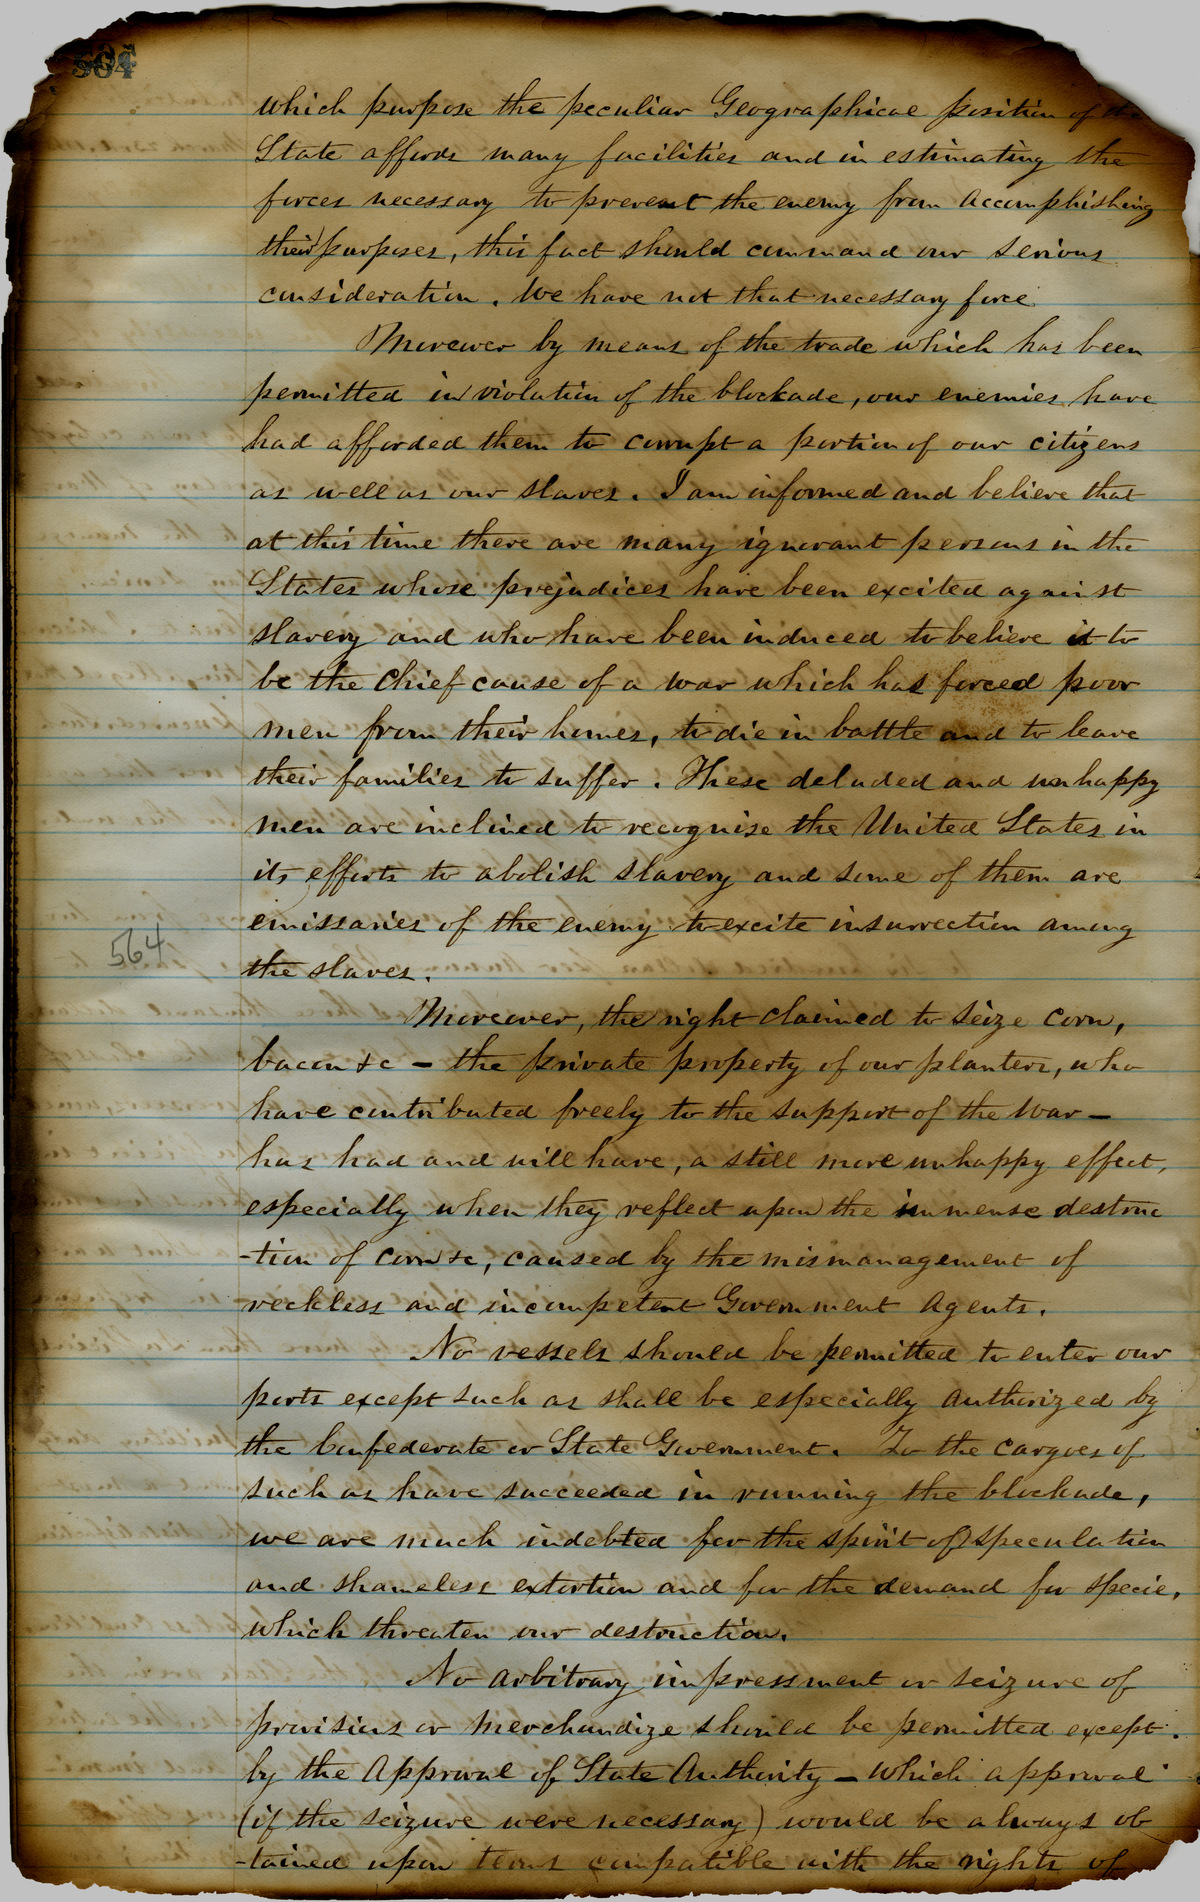 564
which purpose the peculiar Geographical position of the
State affords many facilities and in estimating the
forces necessary to prevent the enemy from accomphishing
their purposes, this fact should command our serious
consideration. We have not that necessary force
Moreover by means of the trade which has been
permitted in violation of the blockade, our enemies have
had afforded them to corrupt a portion of our citizens
as well as our slaves. I am informed and believe that
at this time there are many ignorant persons in the
States whose prejudices have been excited against
slavery and who have been induced to believe it to
be the chief cause of a war which has forced poor
men from their homes, to die in battle and to leave
their families to suffer. These deluded and unhappy
men are inclined to recognise the United States in
its efforts to abolish slavery and some of them are
emissaries of the enemy to excite insurrection among
564
the slaves.
Moreover, the right claimed to seize corn,
bacon &c - the private property of our planters, who
have contributed freely to the support of the war -
has had and will have, a still more unhappy effect,
especially when they reflect upon the immense destruc
-tion of corn &c, caused by the mismanagement of
reckless and incompetent Government Agents.
No vessels should be permitted to enter our
ports except such as shall be especially authorized by
the Confederate or State Government. To the cargoes of
such as have succeeded in running the blockade,
we are much indebted for the spirit of speculation
and shameless extortion and for the demand for specie,
which threaten our destruction.
No arbitrary impressment or seizure of
provisions or merchandize should be permitted except
by the Approval of State Authority - which approval
(if the seizure were necessary) would be always ob
-tained upon terms compatible with the rights of